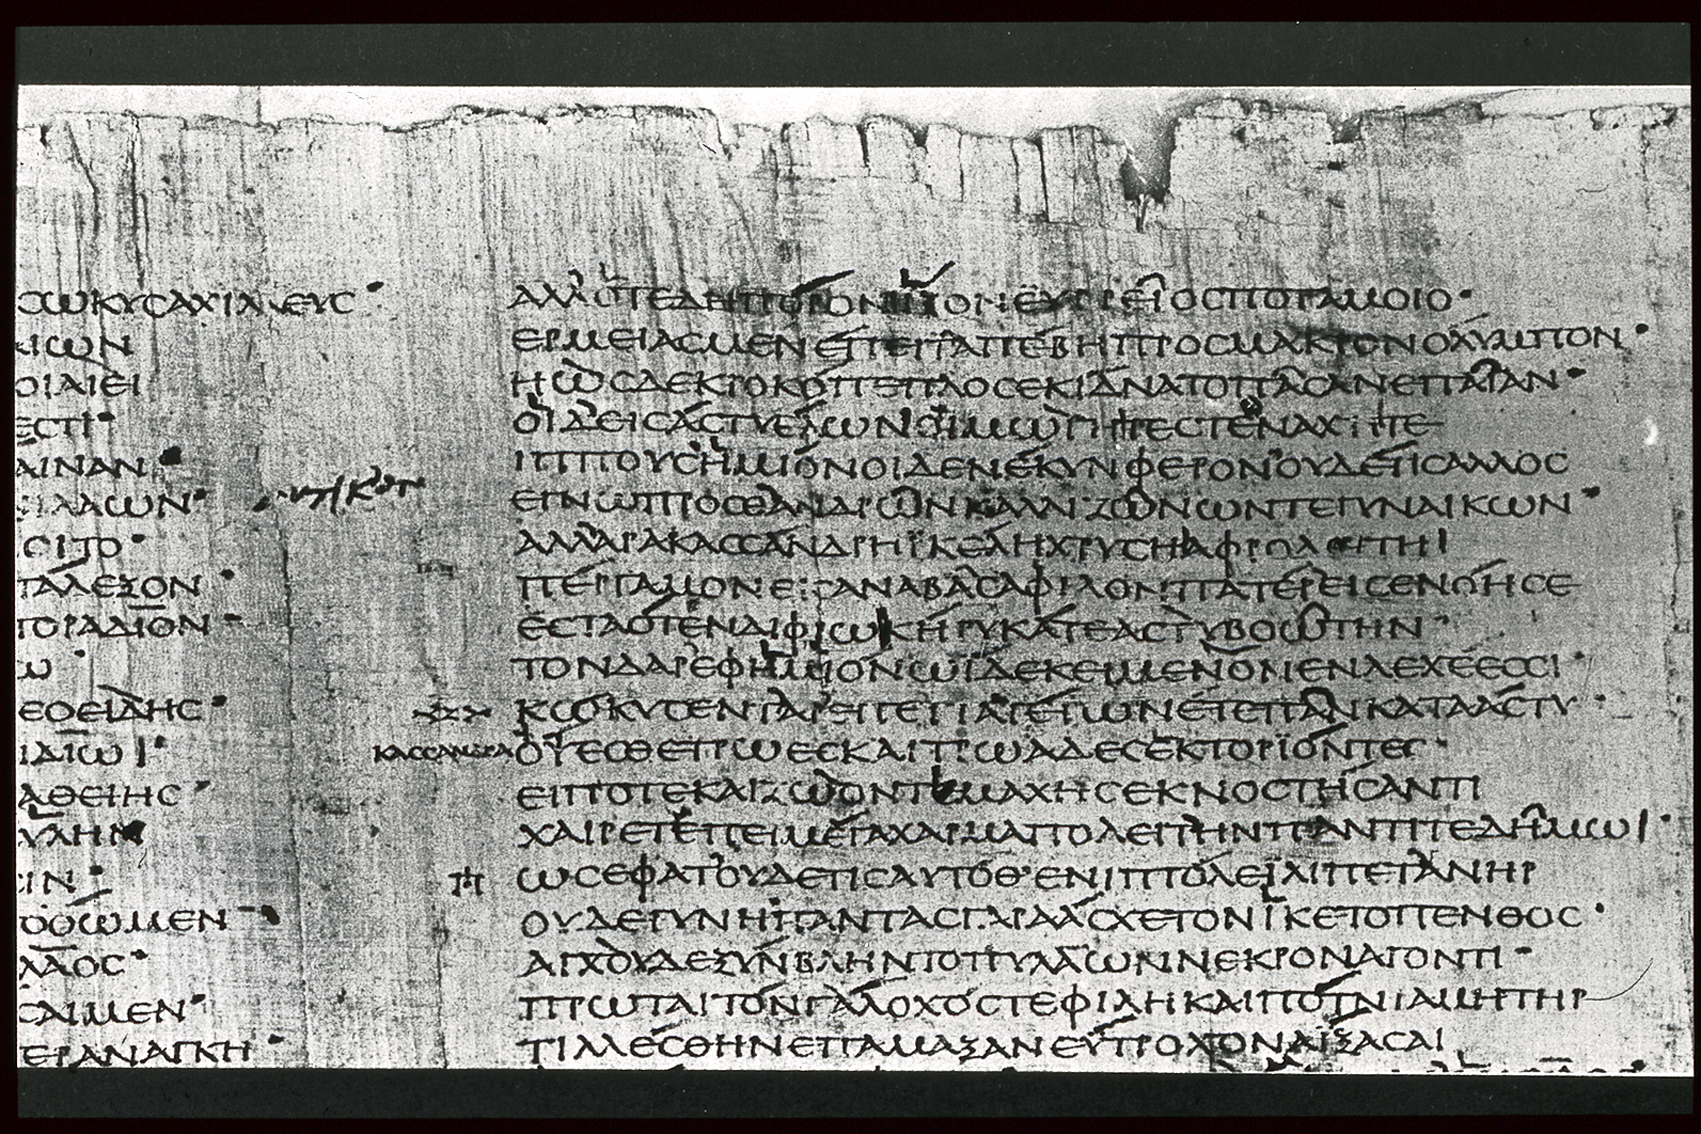 ΩΚΥCΑΧΙΛΛΕΥC·
ΙΩΝ
ΟΙΑΙΕΙ
ΕCΤΙ·
ΑΙΝΑΝ
ΛΑΩΝ·
CΙΤΟ·
ΤΑΛΕΞΟΝ·
ΤΟΡΑΔΙΟΝ·
Ω·
ΕΟΕΙΔΗC·
ΙΔΑΙΩΙ·
ΑΘΕΙΗC·
ΥΛΗΝ
ΙΝ·
ΟΘΩΜΕΝ·
ΛΑΟC·
CΑΙΜΕΝ·
ΕΡΑΝΑΓΚΗ·
ΑΛΛΟΤΕΔΗΠΟΡΟΝΙΞΟΝΕΥΡΡΕΙΟCΠΟΤΑΜΟΙΟ·
ΕΡΜΕΙΑCΜΕΝΕΠΕΙΤΑΠΕΒΗΠΡΟCΜΑΚΡΟΝΟΛΥΜΠΟΝ·
ΗΩCΔΕΚΡΟΚΟΠΕΠΛΟCΕΚΙΔΝΑΤΟΠΑCΑΝΕΠΑΙΑΝ·
ΟΙΔΕΙCΑCΤΥΕΛΩΝΟΙΜΩΓΗΤΕCΤΕΝΑΧΗΤΕ
ΙΠΠΟΥCΗΜΙΟΝΟΙΔΕΝΕΚΥΝΦΕΡΟΝΟΥΔΕΤΙCΑΛΛΟC
ΕΓΝΩΠΡΟCΘΑΝΔΡΩΝΚΑΛΛΙΖΩΝΩΝΤΕΓΥΝΑΙΚΩΝ·
ΑΛΛΑΡΑΚΑCCΑΝΔΡΗΪΚΕΛΗΧΡΥCΗΑΦΡΟΔΕΙΤΗΙ
ΠΕΡΓΑΜΟΝΕΙCΑΝΑΒΑCΑΦΙΛΟΝΠΑΤΕΡΕΙCΕΝΟΗCΕ
ΕCΤΑΟΤΕΝΔΙΦΡΩΚΗΡΥΚΑΤΕΑCΤΥΒΟΩΤΗΝ·
ΤΟΝΔΑΡΕΦΗΜΙΟΝΩΪΔΕΚΕΙΜΕΝΟΝΕΝΛΕΧΕΕCCΙ·
ΚΩΚΥCΕΝΤΑΡΕΠΕΙΤΑΓΕΓΩΝΕΤΕΠΑΝΚΑΤΑΑCΤΥ·
ΚΑCCΑΝΔΡΑ ΟΨΕCΘΕΤΡΩΕCΚΑΙΤΡΩΑΔΕCΕΚΤΟΡΪΟΝΤΕC·
ΕΙΠΟΤΕΚΑΙΖΩΟΝΤΙΜΑΧΗCΕΚΝΟCΤΗCΑΝΤΙ
ΧΑΙΡΕΤΕΠΕΙΜΕΓΑΧΑΡΜΑΠΟΛΕΙΤΗΝΠΑΝΤΙΤΕΔΗΜΩΙ·
ΠΗ ΩCΕΦΑΤΟΥΔΕΤΙCΑΥΤΟΘΕΝΙΠΤΟΛΕΪΛΙΠΕΤΑΝΗΡ
ΟΥΔΕΓΥΝΗΠΑΝΤΑCΓΑΡΑΑCΧΕΤΟΝΪΚΕΤΟΠΕΝΘΟC·
ΑΓΧΟΥΔΕΞΥΝΒΛΗΝΤΟΠΥΛΑΩΝΝΕΚΡΟΝΑΓΟΝΤΙ·
ΠΡΩΤΑΙΤΟΝΓΑΛΟΧΟCΤΕΦΙΛΗΚΑΙΠΟΤΝΙΑΜΗΤΗΡ
ΤΙΛΛΕCΘΗΝΕΠΑΜΑΞΑΝΕΥΤΡΟΧΟΝΑΪΞΑCΑΙ